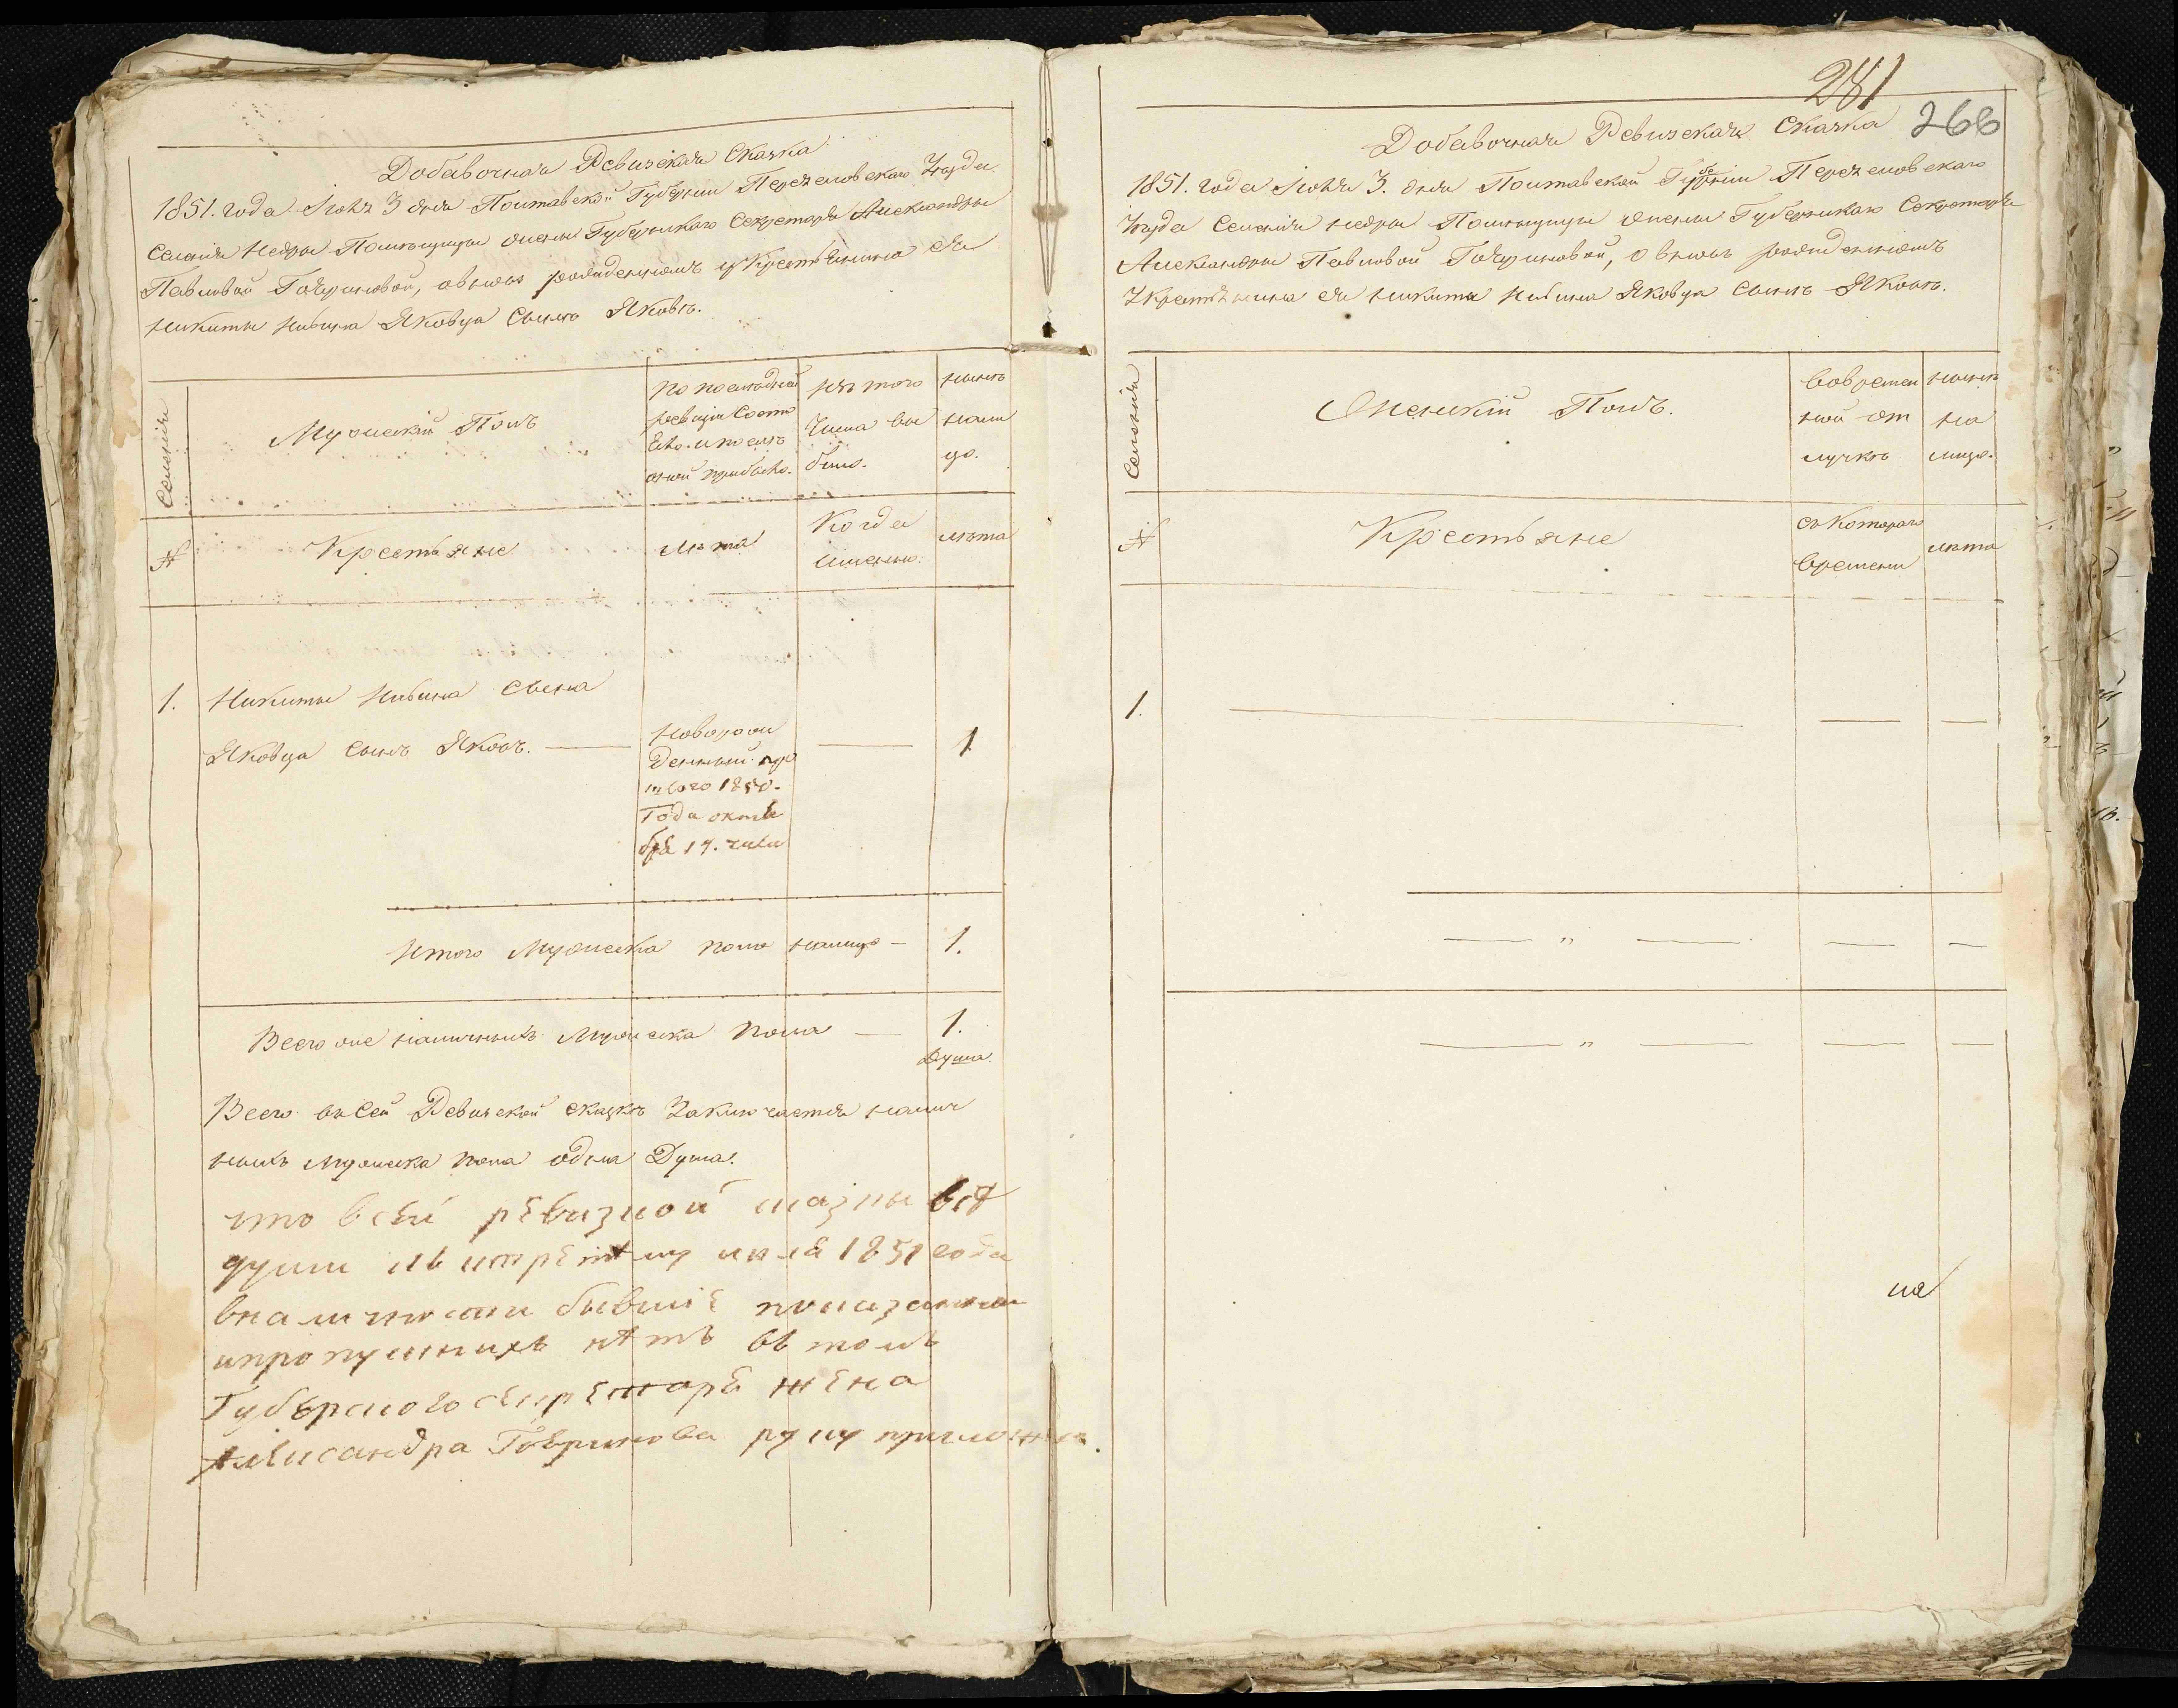 Добавочная Ревизская Сказка
1851. года Іюля 3 дня Полтавской Губерніи Переяславскаго Уезда
Селенія Недры Помѣщицы жены Губернскаго Секретаря Александры
Павловой Говриновой, о вновь рожденномъ у Крестьянина ея
Никиты Яковца Сынъ Яковъ.
Семьи
Мужескій Полъ
По последней
ревизіи Состо
яло. и после
оной прибыло.
Изъ того
Числа вы
было.
ныне
нали
цо.
№
Крестьяне
лѣта
Когда
именно.
лѣта
1. Никиты сына
Яковца Сынъ Яковъ.
новорож
денный
1850.
Года октя
бря 17. числа
1
Итого Мужеска пола налицо — 1.
Всего же наличныхъ Мужеска Пола — 1.
Душа.
Всего въ Сей Ревизской сказкѣ Заключается налич
ныхъ мужеска пола одна Душа.
что всей ревизкой сказкы всѣ
души 1851 года
вналичности бывшіе показанны
ипропущиныхъ нѣтъ въ томъ
Губернского секретаря жена
Александра Говринова руку приложила.
281
266
Добавочная Ревизская Сказка
1851. года Іюля 3. дня Полтавской Губерніи Переяславскаго
Уезда Селенія Недры Помѣщицы жены Губернскаго Секретаря
Александры Павловой Говриновой, о вновь рожденномъ
У Крестьянина ея Никиты Яковца Сынъ Яковъ.
Семьи
Женскій Полъ.
Вовремен
ной от
лучкѣ
ныне
на
лицо.
№
Крестьяне
съ Котораго
Времени
лѣта
1.
ла